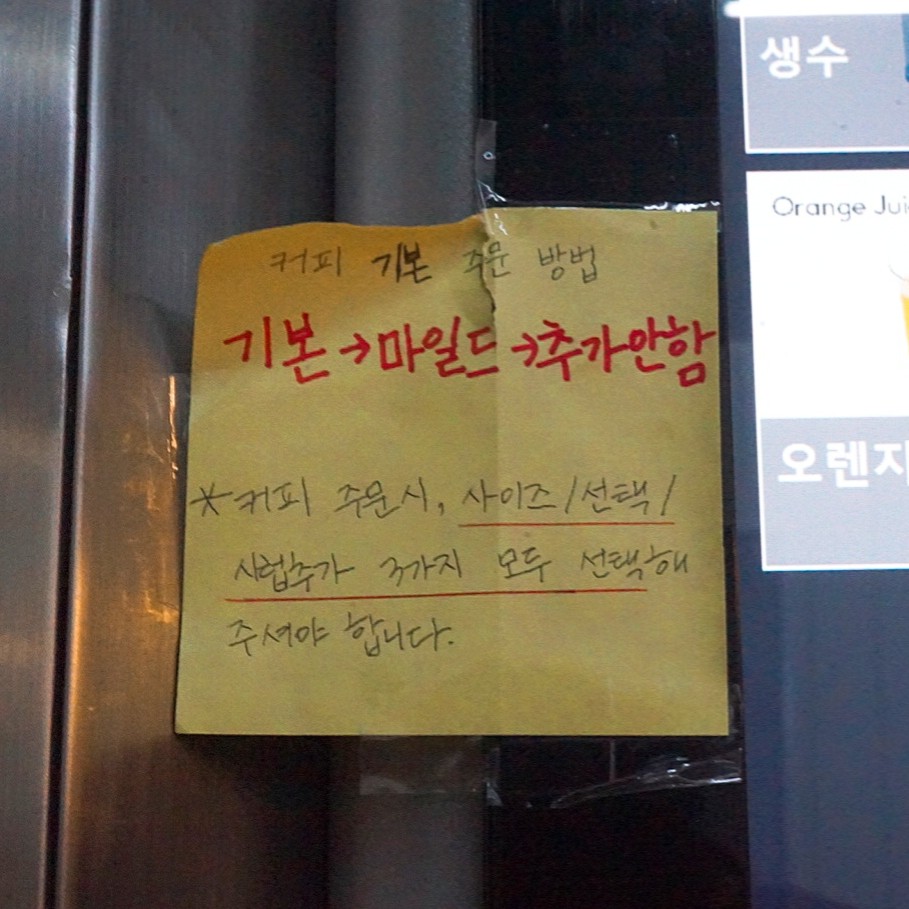 커피 기본 주문 방법
기본→마일드→추가안함
*커피 주문시, 사이즈/선택/
시럽추가 3가지 모두 선택해
주셔야 합니다.
생수
Orange Jui
오렌지